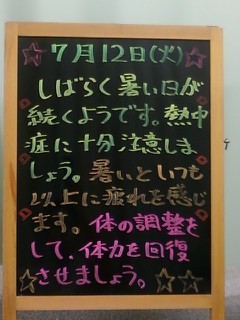 7月12日(火)
しばらく暑い日が
続くようです。熱中
症に十分注意しま
しょう。暑いといつも
以上に疲れを感じ
ます。体の調整を
して、体力を回復
させましょう。